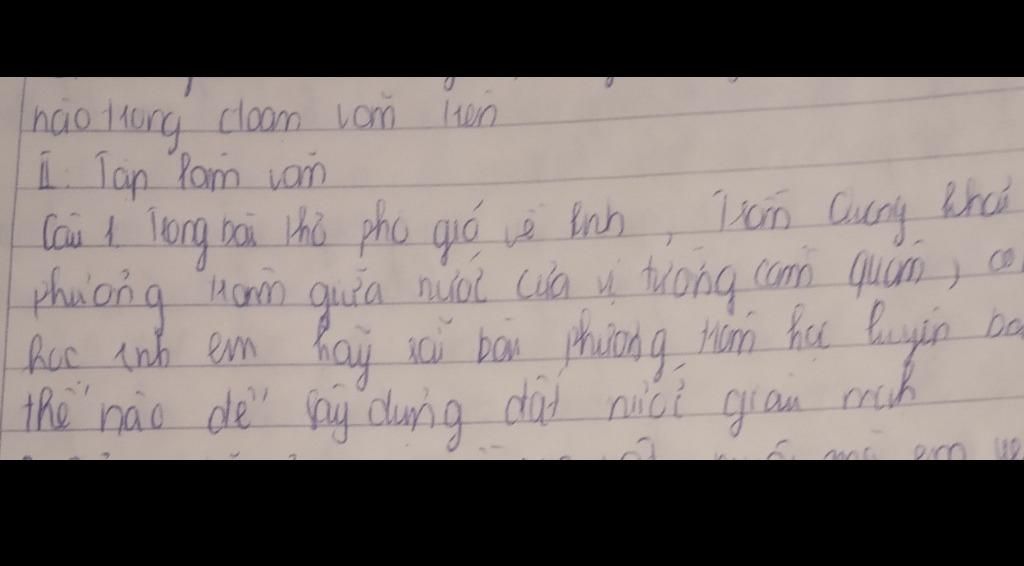 nào trong đoạn văn trên
II. Tập làm văn
Câu 1 Trong bài thơ phò giá về kinh, Trần Quang Khải
phương giữa nước của vị tướng cầm quân,
học sinh em hãy bản phương rèn luyện
thế nào để xây dựng đất nước giàu mạnh